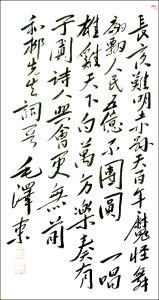 長夜難明赤縣天百年魔怪舞
翩躚人民五億不團圓 一唱
雄雞天下白萬方樂奏有
于闐詩人興會更無前
和柳先生詞 毛澤東